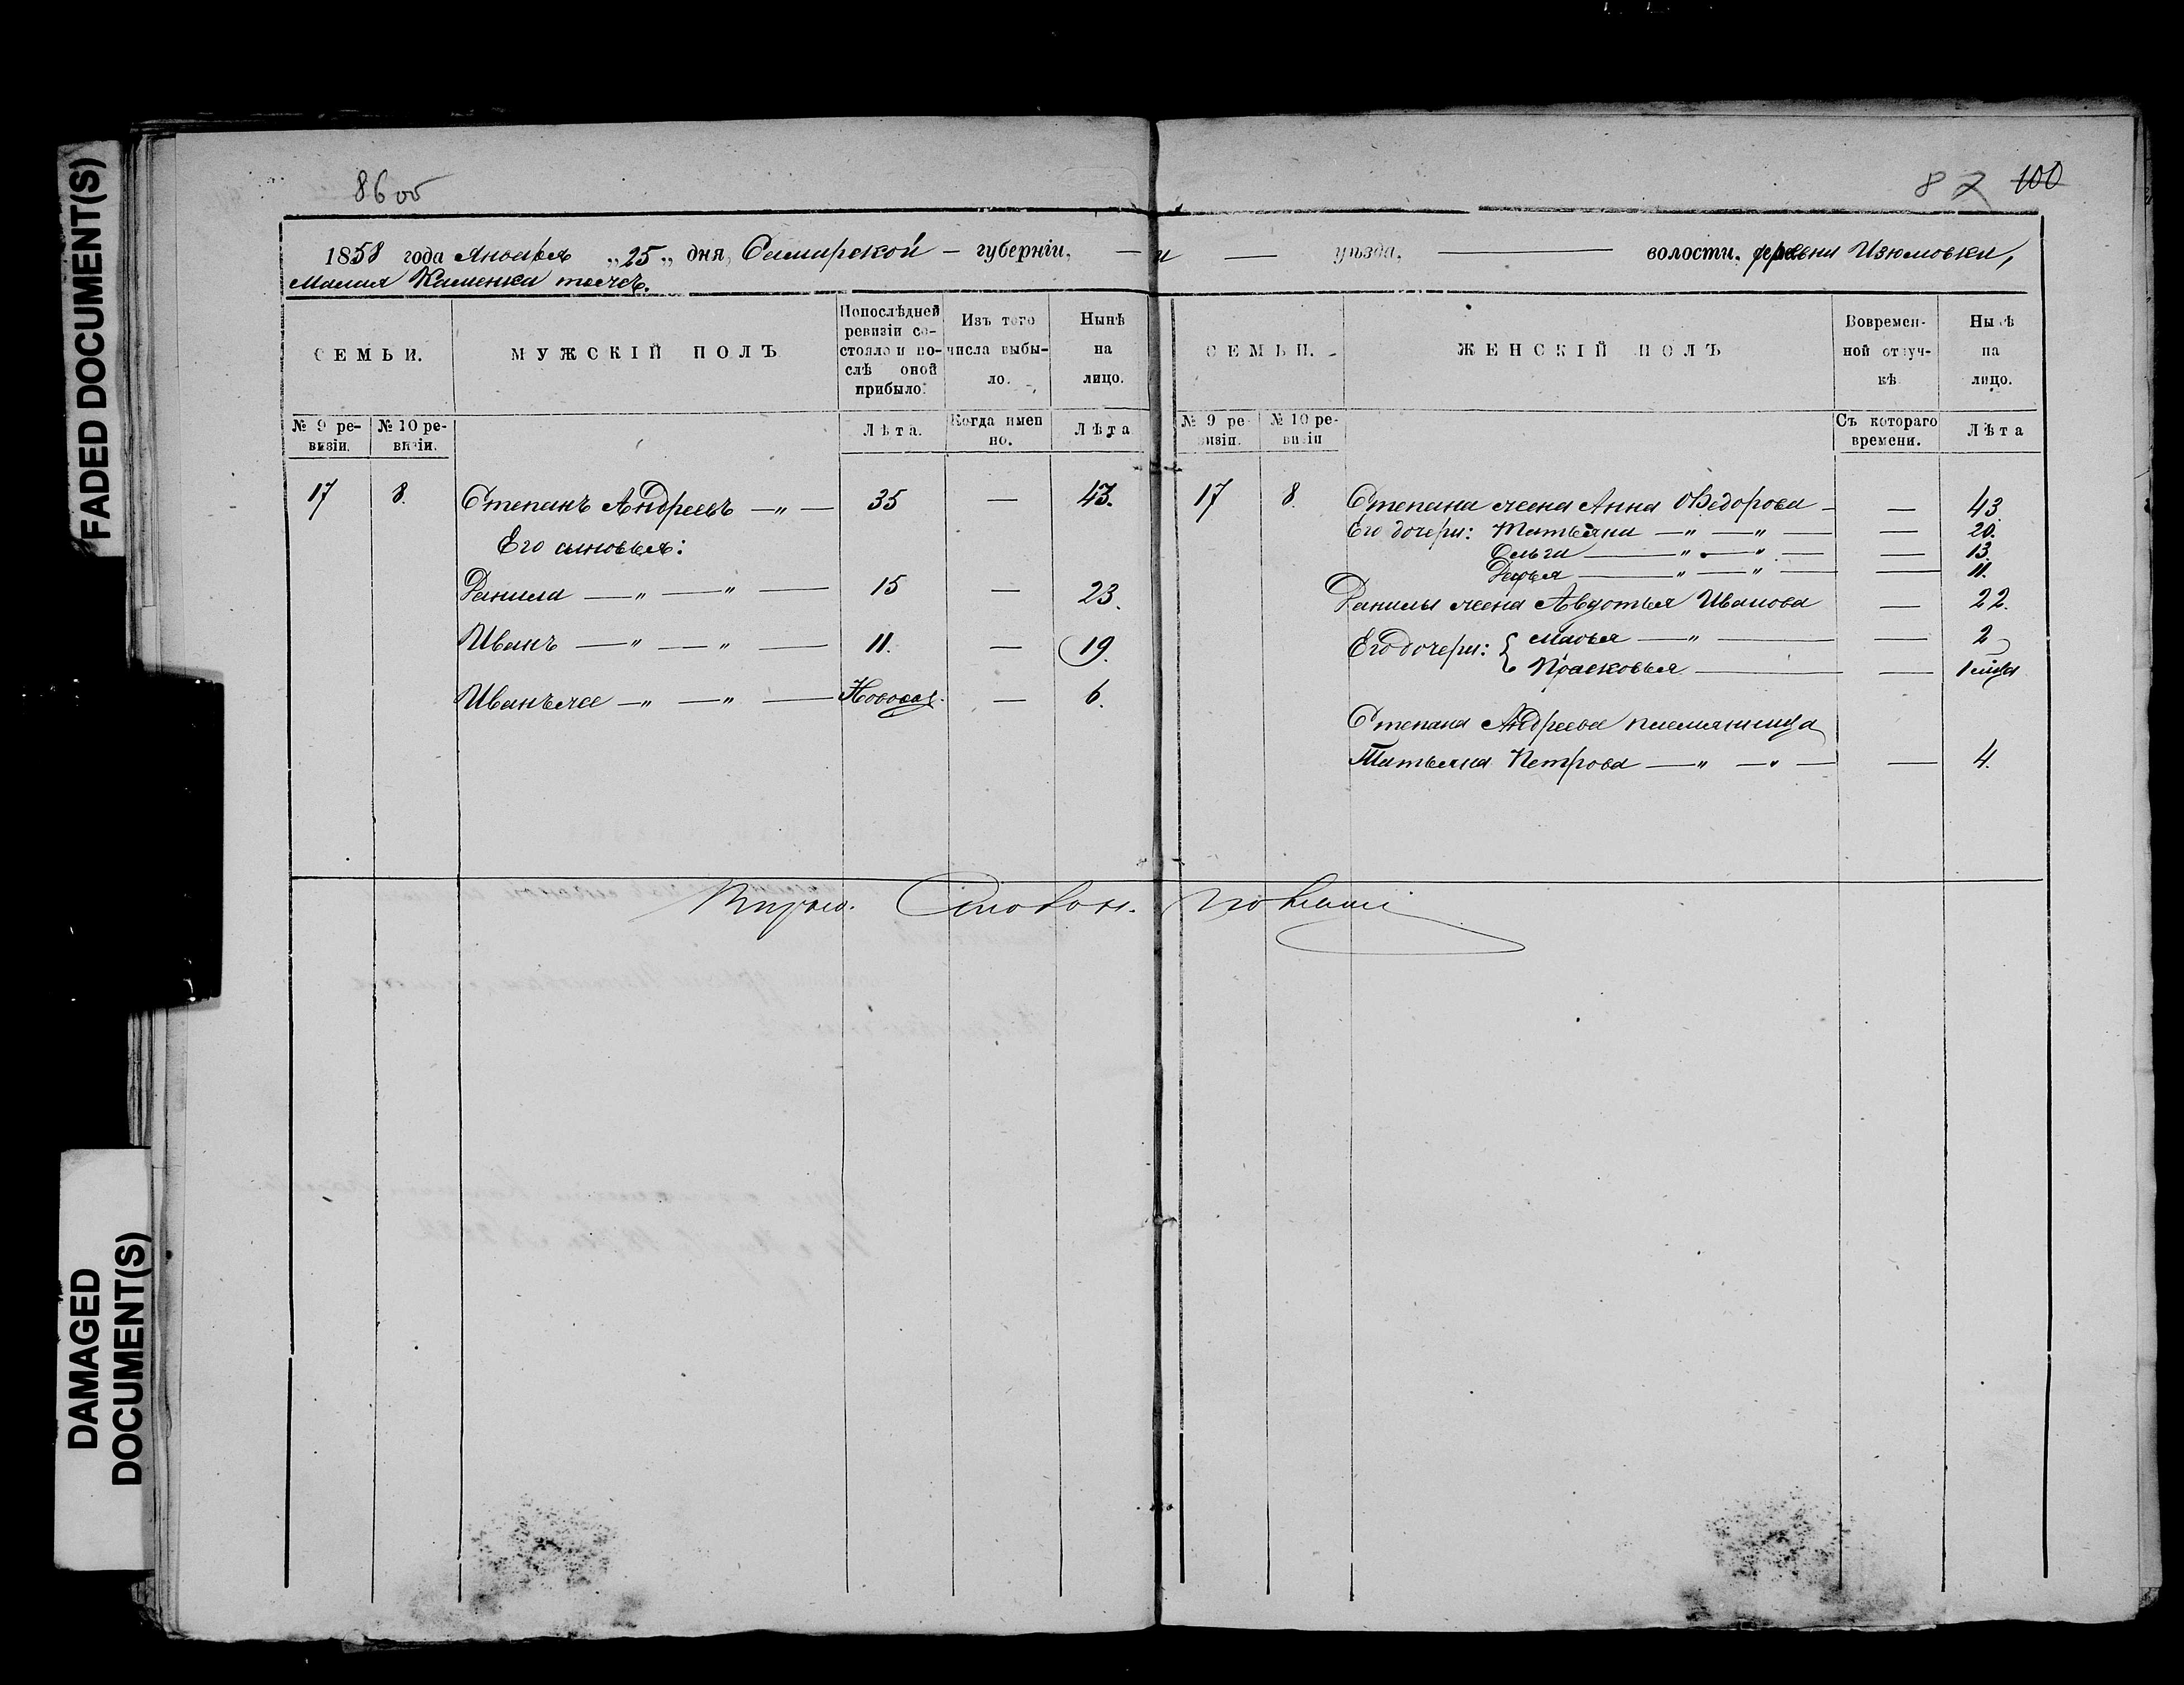 FADED DOCUMENT(S)
DAMAGED
DOCUMENT(S)
86 об
87 100
1858 года Января „25„ дня, Самарской – губерніи, — и — уѣзда, — волости, деревни Изюмовки,
Малая Каменка тожъ.
СЕМЬИ.
МУЖСКІЙ ПОЛЪ
Попослѣдней ревизіи состояло и послѣ оной прибыло.
Изъ того числа выбыло.
Нынѣ на лицо.
СЕМЬИ.
ЖЕНСКІЙ ПОЛЪ
Вовременной отлучкѣ
Нынѣ на лицо.
№ 9 ревизіи.
№ 10 ревизіи.
Лѣта.
Когда именно.
Лѣта
№ 9 ревизіи.
№ 10 ревизіи
Съ котораго времени.
Лѣта
17 8. Степанъ Андреевъ —„— 35 — 43.
Его сыновья:
Данила —„—„— 15 — 23.
Иванъ —„—„— 11. — 19.
Иванъ же —„—„— Новорож. — 6.
17 8 Степана жена Анна Ѳедорова — — 43
Его дочери: Татьяна —„—„— — 20.
Ольга —„—„— — 13.
Дарья —„—„— — 11.
Данилы жена Авдотья Иванова — 22.
Его дочери: { Марья —„— — 2
Прасковья — — 1 мѣся
Степана Андреева племянница
Татьяна Петрова —„—„— — 4.